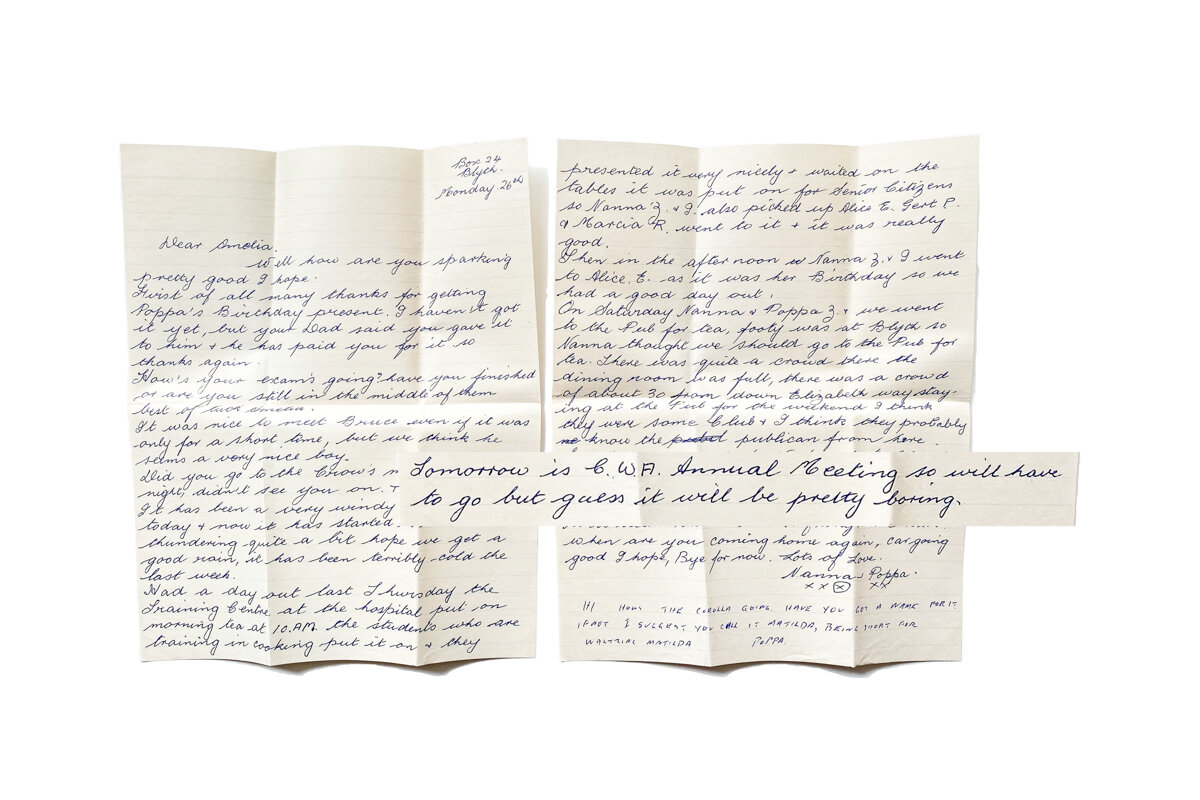 Box 24
Blyth.
Monday 26th
Dear Amelia.
Well how are you sparking
pretty good I hope.
First of all many thanks for getting
Poppa's Birthday present. I haven't got
it yet, but your Dad said you gave it
to him & he has paid you for it so
thanks again.
How's your exam's going? have you finished
or are you still in the middle of them
best of luck Amelia.
It was nice to meet Bruce even if it was
only for a short time, but we think he
seems a very nice boy.
Did you go to the Crow's
night, didn't see you on.
It has been a very windy
today & now it has started
thundering quite a bit hope we get a
good rain, it has been terribly cold the
last week.
Had a day out last Thursday the
Training Centre at the hospital put on
morning tea at 10.A.M. the students who are
training in cooking put it on & they
presented it very nicely & waited on the
tables it was put on for Senior Citizens
so Nanna Z. & I. also picked up Alice E. Gert P.
& Marcia R. went to it & it was really
good.
Then in the afternoon Nanna Z. & I went
to Alice. E. as it was her Birthday so we
had a good day out.
On Saturday Nanna & Poppa Z. & we went
to the Pub for tea, footy was at Blyth so
Nanna thought we should go to the Pub for
tea. There was quite a crowd there the
dining room was full, there was a crowd
of about 30 from down Elizabeth way stay-
ing at the Pub for the weekend I think
they were some Club & I think they probably
know the publican from here.
Tomorrow is C.W.A. Annual Meeting so will have
to go but guess it will be pretty boring.
when are you coming home again, car going
good I hope, Bye for now. Lots of Love.
Nanna & Poppa.
x x x x x
HOWS THE COROLLA GOING HAVE YOU GOT A NAME FOR IT.
IF NOT I SUGGEST YOU CALL IT MATILDA, BEING SHORT FOR
WALTZING MATILDA POPPA.